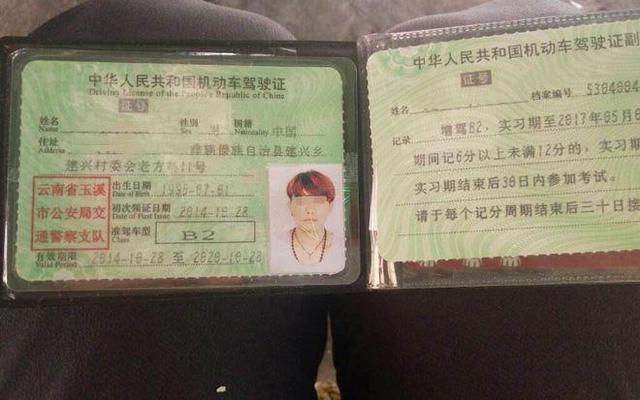 中华人民共和国机动车驾驶证
Driving License of the People's Republic of China
证号
姓名 性别 男 国籍 中国
Name Sex Nationality
住址 彝族傣族自治县建兴乡
Address
建兴村委会老方 11号
云南省玉溪
市公安局交
通警察支队
出生日期
Date of Birth
初次领证日期 2014-10-28
Date of First Issue
准驾车型 B2
Class
有效期限 2014-10-28 至 2020-10-28
Valid Period
中华人民共和国机动车驾驶证副
证号
姓名 档案编号
记录 增驾B2, 实习期至2017年05月
期间记6分以上未满12分的, 实
实习期结束后30日内参加考试。
请于每个记分周期结束后三十日接